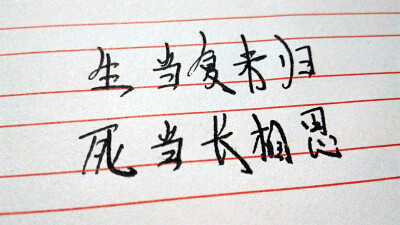 生当复来归
死当长相思